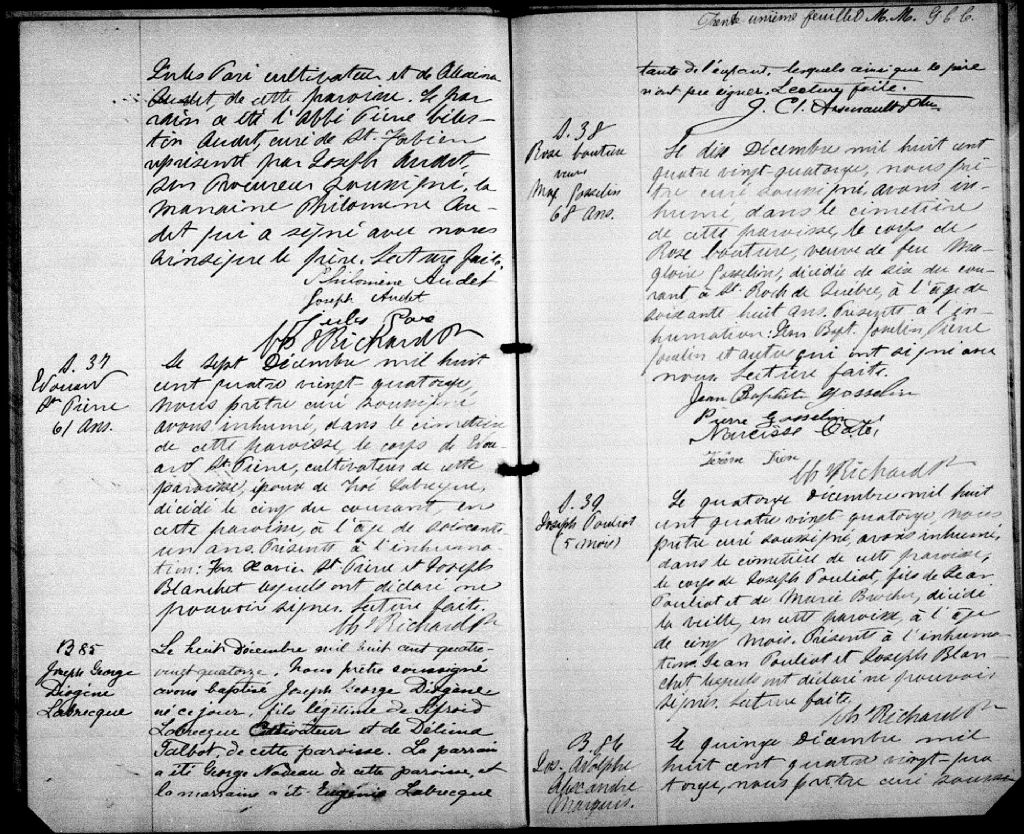 Jules Paré cultivateur et de
Audet, de cette paroisse. Le par
rain a été l'Abbé
Audet, curé de St. Fabien
représenté par Joseph Audet,
son Procureur soussigné, la
marraine Philomène Au-
det qui a signé avec nous
ainsi que le père. Lecture faite.
Philomène Audet
Joseph Audet
Jules Paré
Richard Ptre
S. 37
Edouard
St Pierre
61 Ans.
Le sept Décembre mil huit
cent quatre vingt quatorze,
nous prêtre curé soussigné
avons inhumé, dans le cimetière
de cette paroisse, le corps de Edou-
ard St. Pierre, cultivateur de cette
paroisse, époux de Zoé Labrecque,
décédé le cinq du courant, en
cette paroisse, à l'âge de soixante
un ans. Présents à l'inhuma-
tion: Frs Xavier St. Pierre et Joseph
Blanchet lesquels ont déclaré ne
pouvoir signer. Lecture faite.
Richard Ptre
B 85
Joseph George
Diogène
Labrecque
Le huit Décembre mil huit cent quatre-
vingt quatorze, Nous prêtre soussigné
avons baptisé Joseph George Diogène
né ce jour, fils légitime de
Labrecque Cultivateur et de Délima
Talbot de cette paroisse. Le parrain
a été George Nadeau de cette paroisse, et
la marraine a été Eugénie Labrecque
Trente unième feuillet M. M. G. C. C.
tante de l'enfant, lesquels ainsi que le père
n'ont pu signer. Lecture faite.
J. Cl. Arsenault Ptre.
S. 38
Rose bouture
veuve
Mag Gosselin
68 Ans.
Le dix Décembre mil huit cent
quatre vingt-quatorze, nous prê-
tre curé soussigné, avons in-
humé, dans le cimetière
de cette paroisse, le corps de
Rose bouture, veuve de feu Ma-
gloire Gosselin, décédée le six du cou-
rant, à St. Roch de Québec, à l'âge de
soixante huit ans. Présents à l'in-
humation: Jean Bapt. Goulin Pierre
Goulin et autres qui ont signé avec
nous. Lecture faite.
Jean Baptiste Gosselin
Pierre Gosselin
Narcisse Coté
Richard Ptre
S. 39
Joseph Pouliot
(5 mois)
Le quatorze Décembre mil huit
cent quatre vingt quatorze, nous
prêtre curé soussigné, avons inhumé,
dans le cimetière de cette paroisse,
le corps de Joseph Pouliot, fils de Jean
Pouliot et de Marie Brochu, décédé
la veille, en cette paroisse, à l'âge
de cinq mois. Présents à l'inhuma-
tion: Jean Pouliot et Joseph Blan-
chet lesquels ont déclaré ne pouvoir
signer. Lecture faite.
Richard Ptre
B. 86
Jos. Adolphe
Alexandre
Marquis.
Le quinze Décembre mil
huit cent quatre vingt-qua
torze, nous prêtre curé soussi